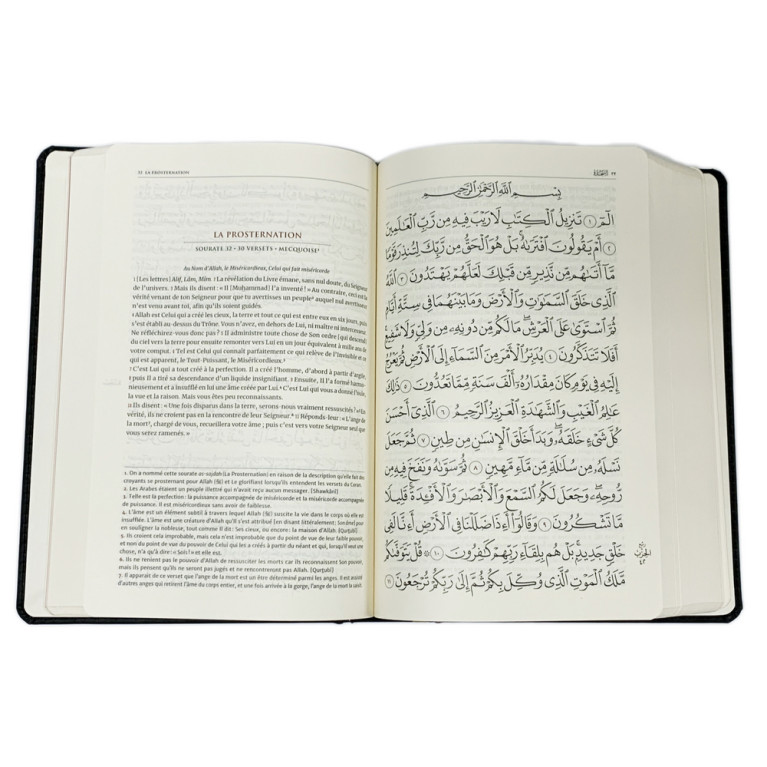 32 LA PROSTERNATION
LA PROSTERNATION
SOURATE 32 • 30 VERSETS • MECQUOISE¹
Au Nom d'Allah, le Miséricordieux, Celui qui fait miséricorde
1 [Les lettres] Alif, Lâm, Mîm. 2 La révélation du Livre émane, sans nul doute, du Seigneur
de l'univers. 3 Mais ils disent : « Il [Muḥammad] l'a inventé ! » Au contraire, ceci est la
vérité venant de ton Seigneur pour que tu avertisses un peuple² auquel nul avertisseur
n'est venu avant toi, afin qu'ils soient guidés.
⁴Allah est Celui qui a créé les cieux, la terre et tout ce qui est entre eux en six jours, puis
s'est établi au-dessus du Trône. Vous n'avez, en dehors de Lui, ni maître ni intercesseur.
Ne réfléchirez-vous donc pas ? ⁵ Il administre toute chose de Son ordre [qui descend]
du ciel vers la terre pour ensuite remonter vers Lui en un jour équivalent à mille ans de
votre comput. ⁶ Tel est Celui qui connaît parfaitement ce qui relève de l'invisible et ce
qui est apparent, le Tout-Puissant, le Miséricordieux.³
⁷C'est Lui qui a tout créé à la perfection. Il a créé l'homme, d'abord à partir d'argile,
⁸ puis Il a tiré sa descendance d'un liquide insignifiant. ⁹ Ensuite, Il l'a formé harmo-
nieusement et a insufflé en lui une âme créée par Lui.⁴ C'est Lui qui vous a donné l'ouïe,
la vue et la raison. Mais vous êtes peu reconnaissants.
¹⁰ Ils disent : « Une fois disparus dans la terre, serons-nous vraiment ressuscités ? »⁵ En
vérité, ils ne croient pas en la rencontre de leur Seigneur.⁶ ¹¹ Réponds-leur : « L'ange de
la mort⁷, chargé de vous, recueillera votre âme ; puis c'est vers votre Seigneur seul que
vous serez ramenés. »
1. On a nommé cette sourate as-sajdah (La Prosternation) en raison de la description qu'elle fait des
croyants se prosternant pour Allah (ﷻ) et Le glorifiant lorsqu'ils entendent les versets du Coran.
2. Les Arabes étaient un peuple illettré qui n'avait reçu aucun messager. [Shawkânî]
3. Telle est la perfection : la puissance accompagnée de miséricorde et la miséricorde accompagnée
de puissance. Il est miséricordieux sans avoir de faiblesse.
4. L'âme est un élément subtil à travers lequel Allah (ﷻ) suscite la vie dans le corps où elle est
insufflée. L'âme est une créature d'Allah qu'Il s'est attribué (en disant littéralement : Son âme) pour
en souligner la noblesse, tout comme Il dit : Ses cieux, ou encore : la maison d'Allah. [Qurṭubî]
5. Ils croient cela improbable, mais cela n'est improbable que du point de vue de leur faible pouvoir,
et non du point de vue du pouvoir de Celui qui les a créés à partir du néant et qui, lorsqu'Il veut une
chose, n'a qu'à dire : « Sois ! » et elle est.
6. Ils ne renient pas le pouvoir d'Allah de ressusciter les morts car ils reconnaissent Son pouvoir,
mais ils pensent qu'ils ne seront pas jugés et ne rencontreront pas Allah. [Qurṭubî]
7. Il apparaît de ce verset que l'ange de la mort est un être déterminé parmi les anges. Il est aussi
d'autres anges qui retirent l'âme du corps entier, et une fois arrivée à la gorge, l'ange de la mort la saisit
السجدة ٣٢
بِسْمِ اللَّهِ الرَّحْمَٰنِ الرَّحِيمِ
الٓمٓ ١ تَنزِيلُ ٱلْكِتَٰبِ لَا رَيْبَ فِيهِ مِن رَّبِّ ٱلْعَٰلَمِينَ
٢ أَمْ يَقُولُونَ ٱفْتَرَىٰهُ بَلْ هُوَ ٱلْحَقُّ مِن رَّبِّكَ لِتُنذِرَ قَوْمًا
مَّآ أَتَىٰهُم مِّن نَّذِيرٍ مِّن قَبْلِكَ لَعَلَّهُمْ يَهْتَدُونَ ٣ ٱللَّهُ
ٱلَّذِى خَلَقَ ٱلسَّمَٰوَٰتِ وَٱلْأَرْضَ وَمَا بَيْنَهُمَا فِى سِتَّةِ أَيَّامٍ
ثُمَّ ٱسْتَوَىٰ عَلَى ٱلْعَرْشِ مَا لَكُم مِّن دُونِهِۦ مِن وَلِىٍّ وَلَا شَفِيعٍ
أَفَلَا تَتَذَكَّرُونَ ٤ يُدَبِّرُ ٱلْأَمْرَ مِنَ ٱلسَّمَآءِ إِلَى ٱلْأَرْضِ ثُمَّ يَعْرُجُ
إِلَيْهِ فِى يَوْمٍ كَانَ مِقْدَارُهُۥٓ أَلْفَ سَنَةٍ مِّمَّا تَعُدُّونَ ٥ ذَٰلِكَ
عَٰلِمُ ٱلْغَيْبِ وَٱلشَّهَٰدَةِ ٱلْعَزِيزُ ٱلرَّحِيمُ ٦ ٱلَّذِىٓ أَحْسَنَ
كُلَّ شَىْءٍ خَلَقَهُۥ وَبَدَأَ خَلْقَ ٱلْإِنسَٰنِ مِن طِينٍ ٧ ثُمَّ جَعَلَ
نَسْلَهُۥ مِن سُلَٰلَةٍ مِّن مَّآءٍ مَّهِينٍ ٨ ثُمَّ سَوَّىٰهُ وَنَفَخَ فِيهِ مِن
رُّوحِهِۦ وَجَعَلَ لَكُمُ ٱلسَّمْعَ وَٱلْأَبْصَٰرَ وَٱلْأَفْـِٔدَةَ قَلِيلًا
مَّا تَشْكُرُونَ ٩ وَقَالُوٓا۟ أَءِذَا ضَلَلْنَا فِى ٱلْأَرْضِ أَءِنَّا لَفِى
خَلْقٍ جَدِيدٍۭ بَلْ هُم بِلِقَآءِ رَبِّهِمْ كَٰفِرُونَ ١٠ ۞ قُلْ يَتَوَفَّىٰكُم
مَّلَكُ ٱلْمَوْتِ ٱلَّذِى وُكِّلَ بِكُمْ ثُمَّ إِلَىٰ رَبِّكُمْ تُرْجَعُونَ ١١